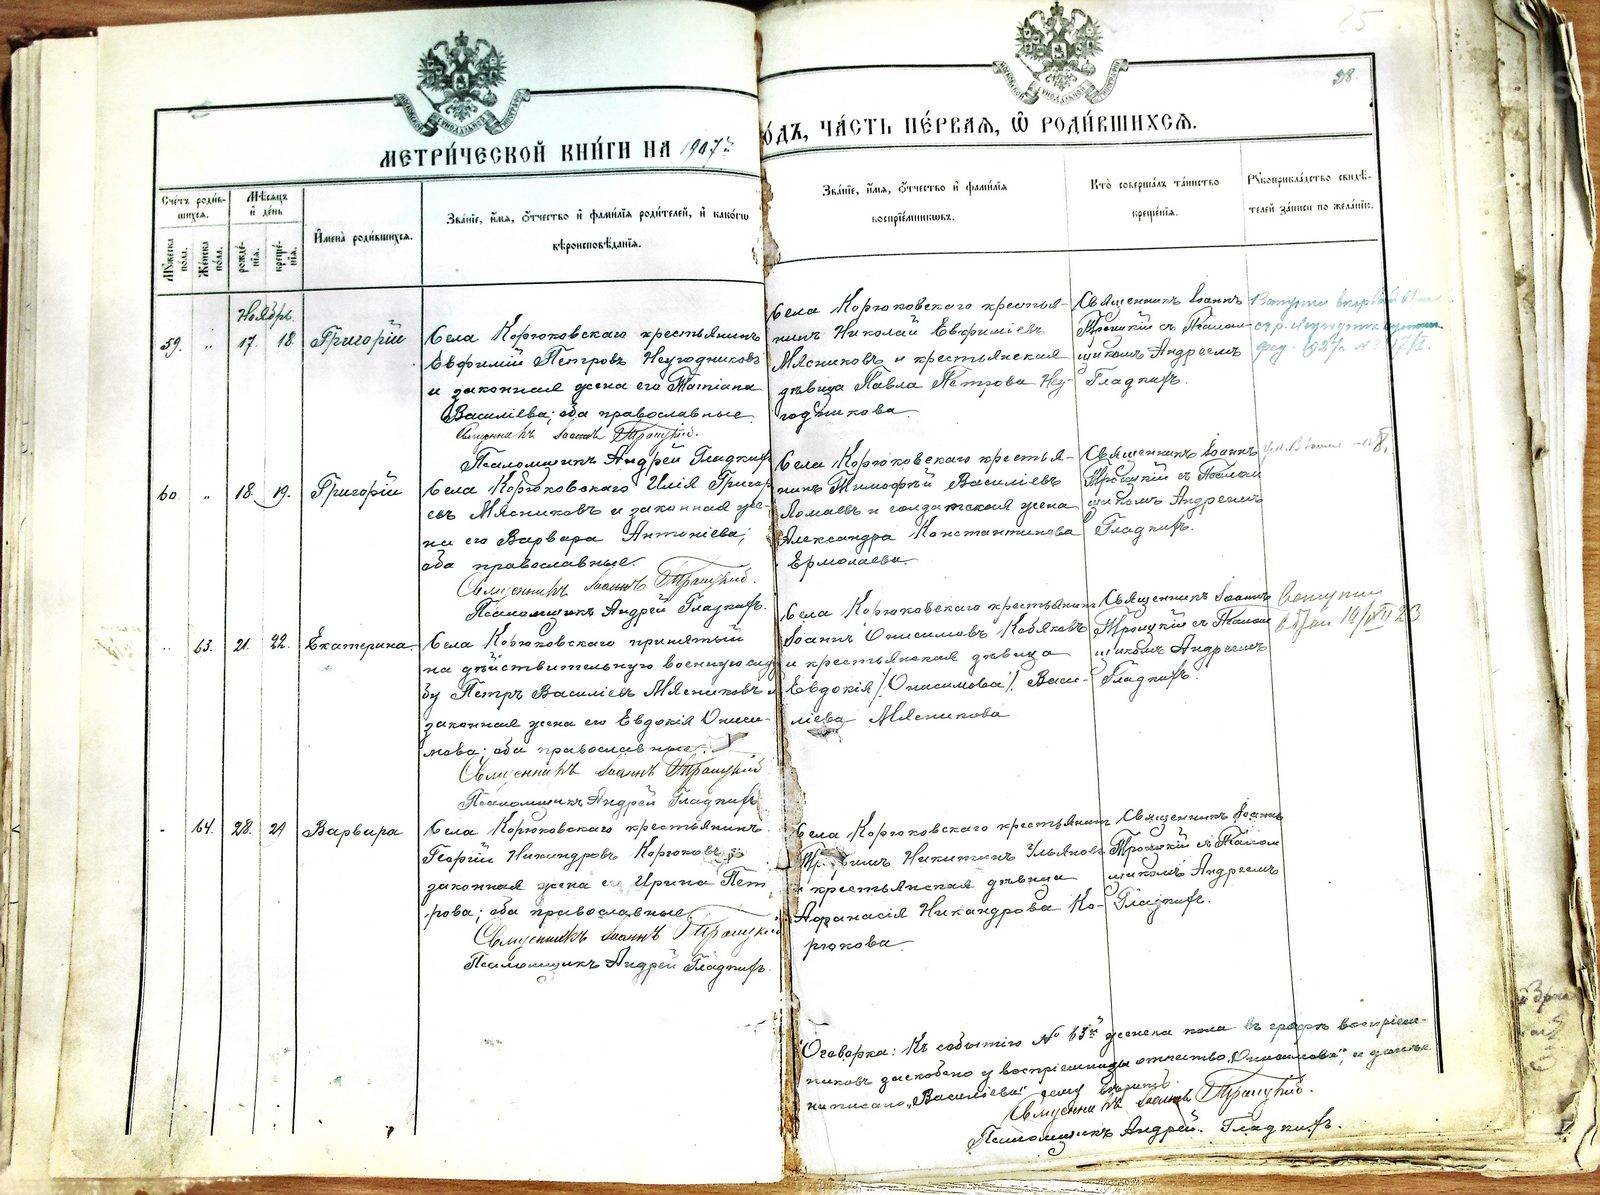 38.
МЕТРИ́ЧЕСКОЙ КНИ́ГИ НА 1907й
ОДЪ, ЧА́СТЬ ПЕ́РВАЯ, Ѡ҆ РОДИ́ВШИХСЯ.
Сче́тъ роди́в-
шихся.
Мѣ́сяцъ
и҆ де́нь
Мꙋ́жеска по́ла.
Же́нска по́ла.
рожде́-
нїя.
креще́-
нїя.
И҆мена̀ роди́вшихся.
Зва́нїе, и҆́мя, ѻ҆́тчество и҆ фами́лїя роди́телей, и҆ како́гѡ
вѣроисповѣ́данїя.
Зва́нїе, и҆́мя, ѻ҆́тчество и҆ фами́лїя
воспрїе́мникѡвъ.
Кто̀ соверша́лъ та́инство
креще́нїя.
Рꙋкоприкла́дство свидѣ́-
телей за́писи по жела́нїю.
Ноябрь
59. „ 17. 18. Григорій
Села Корюковскаго крестьянинъ
Евфимій Петровъ Неугодниковъ
и законная жена его Татіана
Василіева; оба православные.
Священникъ Іоаннъ Троицкій.
Псаломщикъ Андрей Гладкихъ
Села Корюковскаго крестья-
нинъ Николай Евфиміевъ
Мясниковъ и крестьянская
дѣвица Павла Петрова Неу-
годникова.
Священникъ Іоаннъ
Троицкій съ Псалом-
щикомъ Андреемъ
Гладкихъ.
60 „ 18. 19. Григорій
Села Корюковскаго Илія Григор
евъ Мясниковъ и законная же-
на его Варвара Антоніева;
оба православные.
Священникъ Іоаннъ Троицкій.
Псаломщикъ Андрей Гладкихъ.
Села Корюковскаго крестья-
нинъ Тимофѣй Василіевъ
Ломаевъ и солдатская жена
Александра Константинова
Ермолаева.
Священникъ Іоаннъ
Троицкій съ Псалом
щикомъ Андреемъ
Гладкихъ.
„ 63. 21. 22. Екатерина
Села Корюковскаго принятый
на дѣйствительную военную служ
бу Петръ Василіевъ Мясниковъ и
законная жена его ЕвдокіяОниси-
мова; оба православные.
Священникъ Іоаннъ Троицкій
Псаломщикъ Андрей Гладкихъ
Села Корюковскаго крестьянинъ
Іоаннъ Онисимовъ Кобяковъ
и крестьянская дѣвица
Евдокія /Онисимова/ Васи-
ліева Мясникова
Священникъ Іоаннъ
Троицкій съ Псалом
щикомъ Андреемъ
Гладкихъ.
64. 28. 29 Варвара
Села Корюковскаго крестьянинъ
Георгій Никандровъ Корюковъ и
законная жена его Ирина Пет
рова; оба православные.
Священникъ Іоаннъ Троицкій
Псаломщикъ Андрей Гладкихъ.
Села Корюковскаго крестьянинъ
Никитинъ Ульяновъ
и крестьянская дѣвица
Афанасія Никандрова Ко-
рюкова.
Священникъ Іоаннъ
Троицкій съ Псалом
щикомъ Андреемъ
Гладкихъ.
Оговорка: Къ событію № 63й женска пола въ графѣ воспріем-
никовъ заскоблено у воспріемницы отчество „Онисимова“, и
написано „Василіева“ сему вѣрить.
Священникъ Іоаннъ Троицкій.
Псаломщикъ Андрей Гладкихъ.